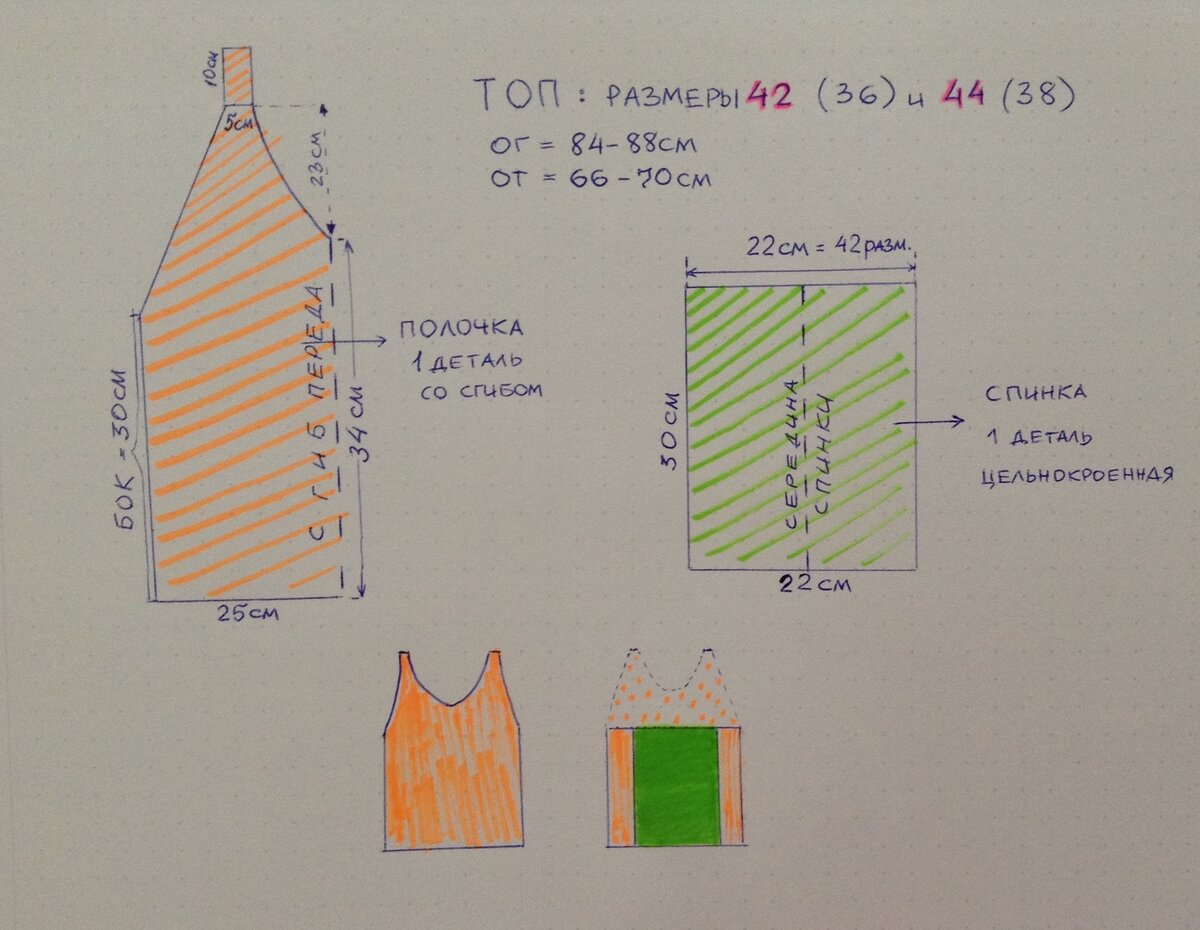 ТОП: РАЗМЕРЫ 42 (36) и 44 (38)
ОГ = 84-88см
ОТ = 66-70см
10см
5см
23см
СГИБ ПЕРЕДА
34см
БОК = 30см
25см
ПОЛОЧКА
1 ДЕТАЛЬ
СО СГИБОМ
22см = 42 РАЗМ.
30см
СЕРЕДИНА
СПИНКИ
22см
СПИНКА
1 ДЕТАЛЬ
ЦЕЛЬНОКРОЕННАЯ